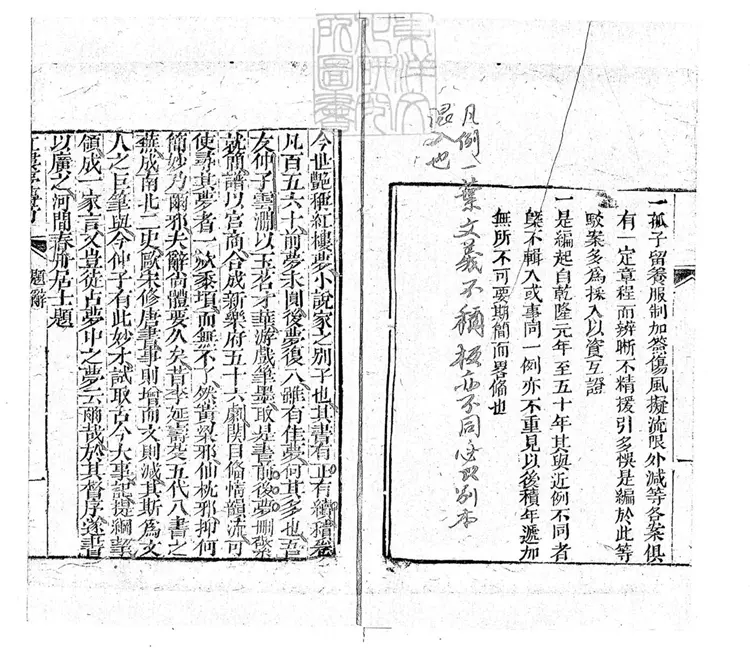 東洋文
化研究
所圖書
一孤子留養服制加簽傷風擬流限外減等各案俱
有一定章程而辨晰不精援引多悞是編於此等
駁案多為採入以資互證
一是編起自乾隆元年至五十年其與近例不同者
槩不輯入或事同一例亦不重見以後積年遞加
無所不可要期簡而畧俻也
凡例一葉文義不類板亦不同必別本
混入也
今世艷稱紅樓夢小說家之別子也其書有正有續積卷
凡百五六十前夢未圓後夢復入雖有佳夢何其多也吾
友仲子雲澗以玉茗才華游戲筆墨取是書前後夢刪繁
就簡譜以宮商合成新樂府五十六劇関目俻情韻流可
使尋其夢者一炊黍頃而無不了然黃粱邪仙枕邪抑何
簡妙乃爾邪夫辭尚體要久矣昔李延壽芟五代八書之
蕪成南北二史歐宋修唐書事則增而文則減其斯為文
人之巨筆與今仲子有此妙才試取古今大事記提綱挈
領成一家言又豈徒占夢中之夢云爾哉於其督序遂書
以廣之河間春舟居士題
題辭